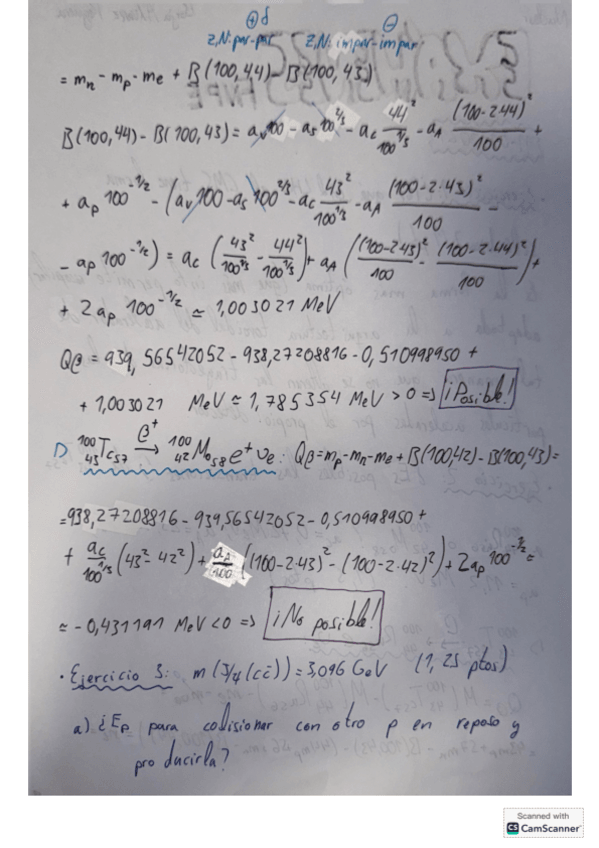 ⊕δ ⊖
Z,N: par-par Z,N: impar-impar
= mₙ - mₚ - mₑ + B(100,44) - B(100,43)
B(100,44) - B(100,43) = a_v 100 - a_s 100^{2/3} - a_c 44²/100^{1/3} - a_A (100-2·44)²/100 +
+ a_p 100^{-1/2} - (a_v 100 - a_s 100^{2/3} - a_c 43²/100^{1/3} - a_A (100-2·43)²/100 -
- a_p 100^{-1/2}) = a_c (43²/100^{1/3} - 44²/100^{1/3}) + a_A ((100-2·43)²/100 - (100-2·44)²/100) +
+ 2a_p 100^{-1/2} ≃ 1,003021 MeV
Qβ = 939,56542052 - 938,27208816 - 0,510998950 +
+ 1,003021 MeV ≃ 1,785354 MeV > 0 ⇒ ¡Posible!
D ¹⁰⁰₄₃Tc₅₇ →^{β⁺} ¹⁰⁰₄₂Mo₅₈ e⁺ νe: Qβ = mₚ - mₙ - mₑ + B(100,42) - B(100,43) =
= 938,27208816 - 939,56542052 - 0,510998950 +
+ a_c/100^{1/3} (43² - 42²) + a_A/100 ((100-2·43)² - (100-2·42)²) + 2a_p 100^{-1/2} ≃
≃ -0,431191 MeV < 0 ⇒ ¡No posible!
· Ejercicio 3: m(J/ψ(cc̄)) = 3,096 GeV (1,25 ptos)
a) ¿Eₚ para colisionar con otro p en reposo y
producirla?
Scanned with
CS CamScanner